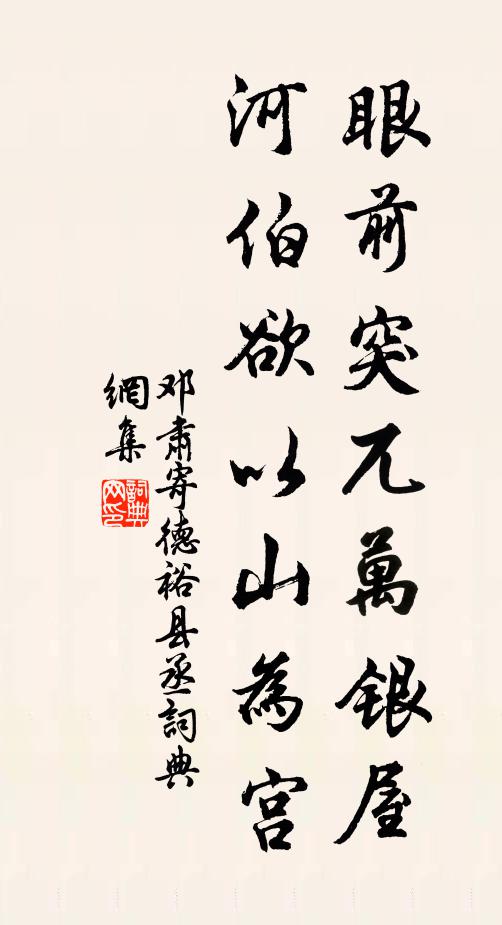 眼前突兀萬银屋
河伯欲以山為宫
邓肃寄德裕县丞詞典
網集
詞典
网印